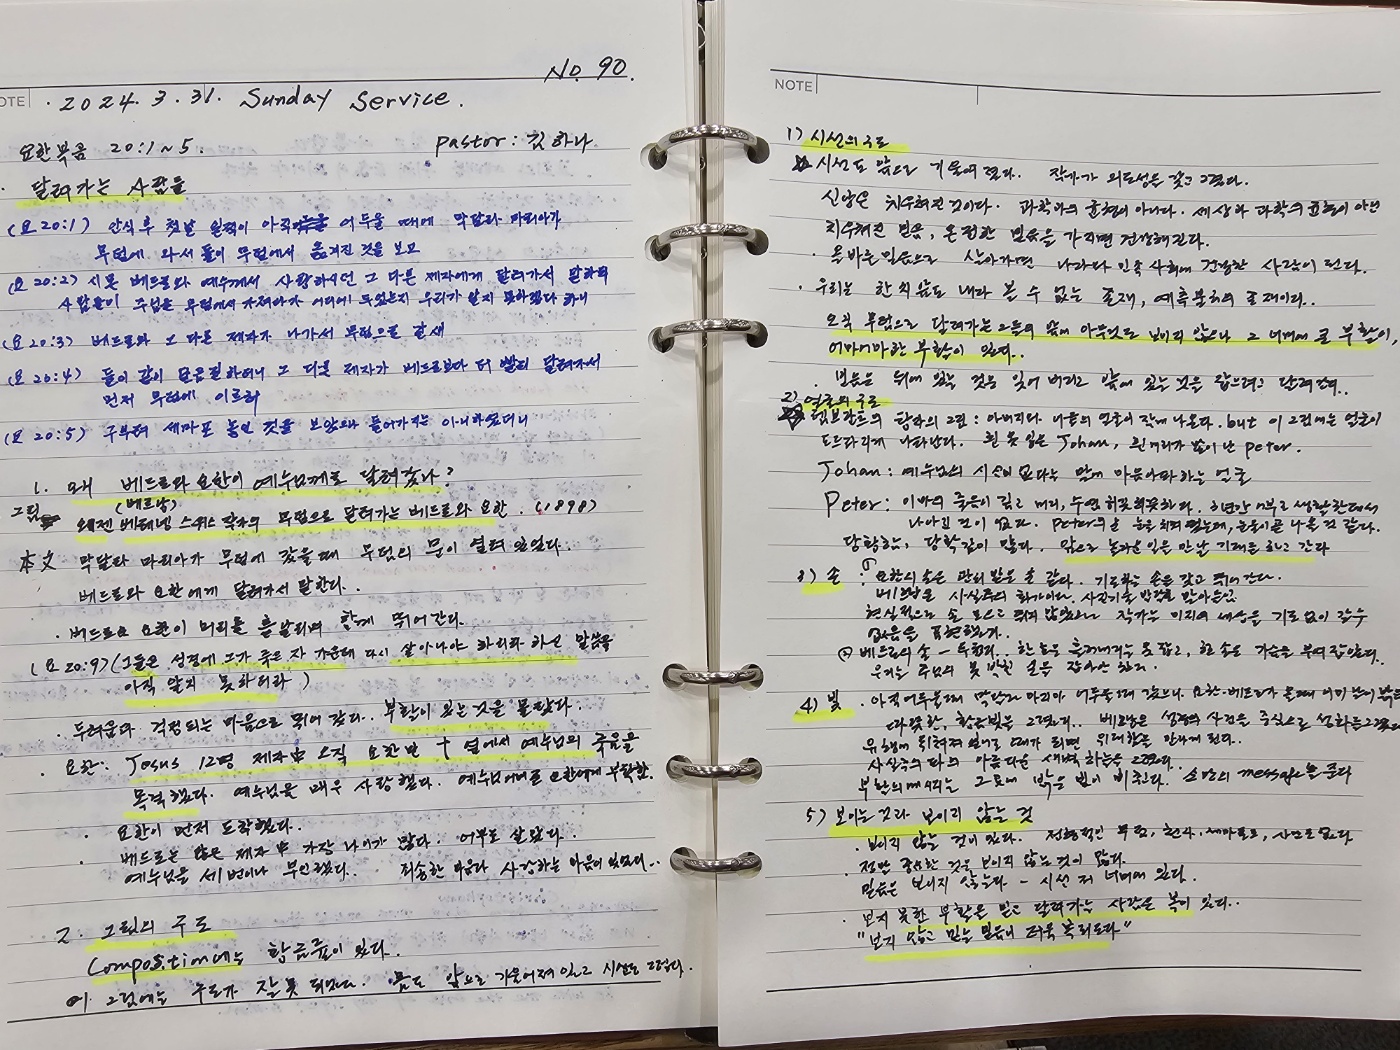 No. 90.
NOTE · 2024. 3. 31. Sunday Service.
요한복음 20:1~5. pastor: 김하나
· 달려가는 사람들
(요 20:1) 안식 후 첫날 일찍이 아직 어두울 때에 막달라 마리아가
무덤에 와서 돌이 무덤에서 옮겨진 것을 보고
(요 20:2) 시몬 베드로와 예수께서 사랑하시던 그 다른 제자에게 달려가서 말하되
사람들이 주님을 무덤에서 가져다가 어디에 두었는지 우리가 알지 못하겠다 하니
(요 20:3) 베드로와 그 다른 제자가 나가서 무덤으로 갈새
(요 20:4) 둘이 같이 달음질하더니 그 다른 제자가 베드로보다 더 빨리 달려가서
먼저 무덤에 이르러
(요 20:5) 구부려 세마포 놓인 것을 보았으나 들어가지는 아니하였더니
1. 왜 베드로와 요한이 예수님께로 달려갔나?
(베르낭)
그림 외젠 스위스 작가의 무덤으로 달려가는 베드로와 요한. (1898)
本文 막달라 마리아가 무덤에 갔을때 무덤의 문이 열려 있었다.
베드로와 요한에게 달려가서 말한다.
· 베드로와 요한이 머리를 흩날리며 함께 뛰어간다.
(요 20:9) (그들은 성경에 그가 죽은 자 가운데 다시 살아나야 하리라 하신 말씀을
아직 알지 못하더라)
· 두려움과 걱정되는 마음으로 뛰어 갔다. 부활이 있는 것을 몰랐다.
· 요한: Jesus 12명 제자中 오직 요한만 † 옆에서 예수님의 죽음을
목격했다. 예수님을 매우 사랑했다. 예수님 어머니를 요한에게 부탁함.
· 요한이 먼저 도착했다.
· 베드로는 많은 제자 中 가장 나이가 많다. 어부로 살았다.
예수님을 세 번이나 부인했다. 죄송한 마음과 사랑하는 마음이 있었다..
2. 그림의 구도
Composition에는 황금률이 있다.
이 그림에는 구도가 잘못 되었다. 몸도 앞으로 기울어져 있고 시선도 그렇다.
NOTE
1) 시선의 구도
시선도 앞으로 기울어졌다. 작가가 의도성을 갖고 그렸다.
신앙은 치우쳐진 것이다. 과학과의 균형이 아니다. 세상과 과학의 균형이 아닌
치우쳐진 믿음, 온전한 믿음을 가지면 건강해진다.
· 올바른 믿음으로 살아가면 나라와 민족 사회에 건강한 사람이 된다.
· 우리는 한치 앞도 내다 볼 수 없는 존재, 예측불허의 존재이다..
오직 무덤으로 달려가는 그들의 앞에 아무것도 보이지 않으나 그 너머에 큰 부활이,
어마어마한 부활이 있다..
· 믿음은 뒤에 있는 것은 잊어 버리고 앞에 있는 것을 잡으려고 달려간다..
2) 얼굴의 구도
렘브란트의 탕자의 그림: 아버지와 아들의 얼굴이 작게 나온다. but 이 그림에는 얼굴이
도드라지게 나타난다. 흰 옷 입은 Johan, 흰머리가 많이 난 peter.
Johan: 예수님의 시신이 없다는 말에 마음아파하는 얼굴
Peter: 이마의 주름이 깊고 머리, 수염 희끗희끗하다. 3년간 어부로 생활한데서
나아진 것이 없다. peter의 눈은 치켜 떴는데, 눈물이 곧 나올 것 같다.
당황함, 당혹감이 많다. 앞으로 놀라운 일을 만날 기대를 하고 간다
3) 손: ① 요한의 손은 관리 받은 손 같다. 기도하는 손을 갖고 뛰어 간다.
베르낭은 사실주의 화가이다. 사진기술 발전을 받아들인
현실적으로 손 모으고 뛰지 않았으나 작가는 미지의 세상을 기도 없이 갈수
없음을 표현했다..
② 베드로의 손 - 투박하다.. 한 손은 가슴을 부여 잡았다.
우리는 주님의 못 박힌 손을 잡아야 한다.
4) 빛 · 아직어두울때 막달라 마리아 어두울때 갔으나, 요한·베드로가 올때 이미 날이 밝은
따뜻한, 황금빛을 그렸다.. 베르낭은 성경의 사건을 중심으로 성화를 그렸고
사실주의의 아름다운 새벽 하늘을 그렸다.
부활의 메세지는 그곳에 밝은 빛이 비춘다. 소망의 message를 준다
5) 보이는 것과 보이지 않는 것
· 보이지 않는 것이 있다. 전형적인 무덤, 천사, 세마포도, 시신도 없다
정말 중요한 것은 보이지 않는 것이 많다.
믿음은 보이지 않는다 - 시선 저 너머에 있다.
· 보지 못한 부활을 믿고 달려가는 사람은 복이 있다..
"보지 않고 믿는 믿음이 더욱 복되도다"